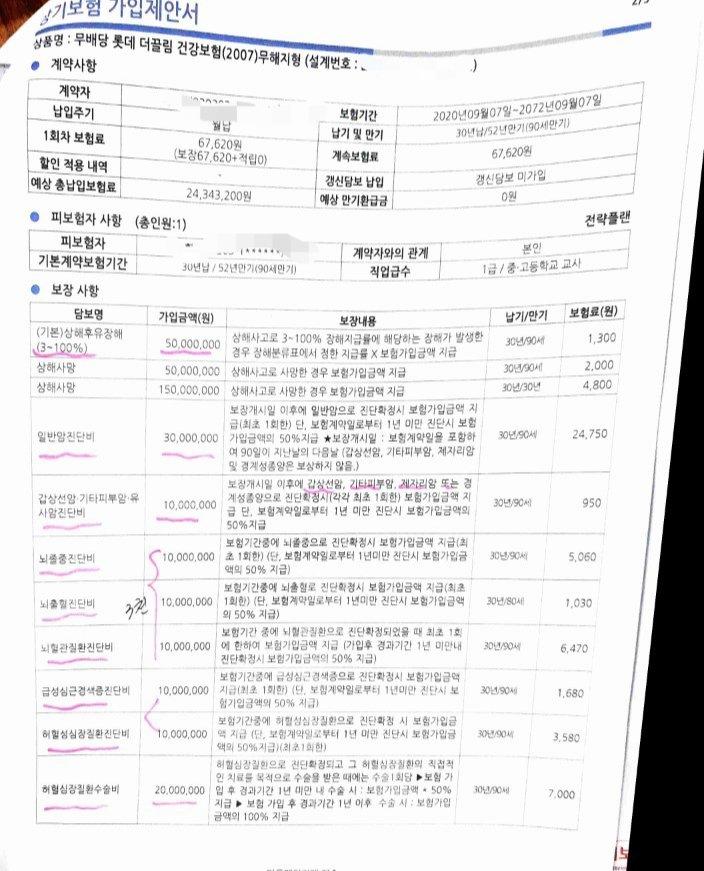 장기보험 가입제안서
상품명 : 무배당 롯데 더끌림 건강보험(2007)무해지형 (설계번호 : .)
계약사항
계약자
납입주기 월납 보험기간 2020년09월07일~2072년09월07일
1회차 보험료 67,620원 (보장67,620+적립0) 납기 및 만기 30년납/52년만기(90세만기)
할인 적용 내역 - 계속보험료 67,620원
예상 총납입보험료 24,343,200원 갱신담보 납입 갱신담보 미가입
예상 만기환급금 0원
피보험자 사항 (총인원:1) 전략플랜
피보험자 (******) 계약자와의 관계 본인
기본계약보험기간 30년납 / 52년만기(90세만기) 직업급수 1급 / 중·고등학교 교사
보장 사항
담보명 가입금액(원) 보장내용 납기/만기 보험료(원)
(기본)상해후유장해
(3~100%) 50,000,000 상해사고로 3~100% 장해지급률에 해당하는 장해가 발생한
경우 장해분류표에서 정한 지급률 X 보험가입금액 지급 30년/90세 1,300
상해사망 50,000,000 상해사고로 사망한 경우 보험가입금액 지급 30년/90세 2,000
상해사망 150,000,000 상해사고로 사망한 경우 보험가입금액 지급 30년/30년 4,800
일반암진단비 30,000,000 보장개시일 이후에 일반암으로 진단확정시 보험가입금액 지
급(최초 1회한) 단, 보험계약일로부터 1년 미만 진단시 보험
가입금액의 50%지급 ★보장개시일 : 보험계약일을 포함하
여 90일이 지난날의 다음날 (갑상선암, 기타피부암, 제자리암
및 경계성종양은 보상하지 않음.) 30년/90세 24,750
갑상선암·기타피부암·유
사암진단비 10,000,000 보장개시일 이후에 갑상선암, 기타피부암, 제자리암 또는 경
계성종양으로 진단확정시(각각 최초 1회한) 보험가입금액 지
급 단, 보험계약일로부터 1년 미만 진단시 보험가입금액의
50%지급 30년/90세 950
뇌졸중진단비 10,000,000 보험기간중에 뇌졸중으로 진단확정시 보험가입금액 지급(최
초 1회한) (단, 보험계약일로부터 1년미만 진단시 보험가입금
액의 50% 지급) 30년/90세 5,060
뇌출혈진단비 10,000,000 보험기간중에 뇌출혈로 진단확정시 보험가입금액 지급(최초
1회한) (단, 보험계약일로부터 1년미만 진단시 보험가입금액
의 50% 지급) 30년/80세 1,030
뇌혈관질환진단비 10,000,000 보험기간 중에 뇌혈관질환으로 진단확정되었을 때 최초 1회
에 한하여 보험가입금액 지급 (가입후 경과기간 1년 미만내
진단확정시 보험가입금액의 50% 지급) 30년/90세 6,470
급성심근경색증진단비 10,000,000 보험기간중에 급성심근경색증으로 진단확정시 보험가입금액
지급(최초 1회한) (단, 보험계약일로부터 1년미만 진단시 보
험가입금액의 50% 지급) 30년/90세 1,680
허혈성심장질환진단비 10,000,000 보험기간중에 허혈성심장질환으로 진단확정 시 보험가입금
액 지급 (단, 보험계약일로부터 1년 미만 진단시 보험가입금
액의 50%지급)(최초1회한) 30년/90세 3,580
허혈심장질환수술비 20,000,000 허혈심장질환으로 진단확정되고 그 허혈심장질환의 직접적
인 치료를 목적으로 수술을 받은 때에는 수술1회당 ▶보험 가
입 후 경과기간 1년 미만 내 수술 시 : 보험가입금액 * 50%
지급 ▶ 보험 가입 후 경과기간 1년 이후 수술 시 : 보험가입
금액의 100% 지급 30년/90세 7,000